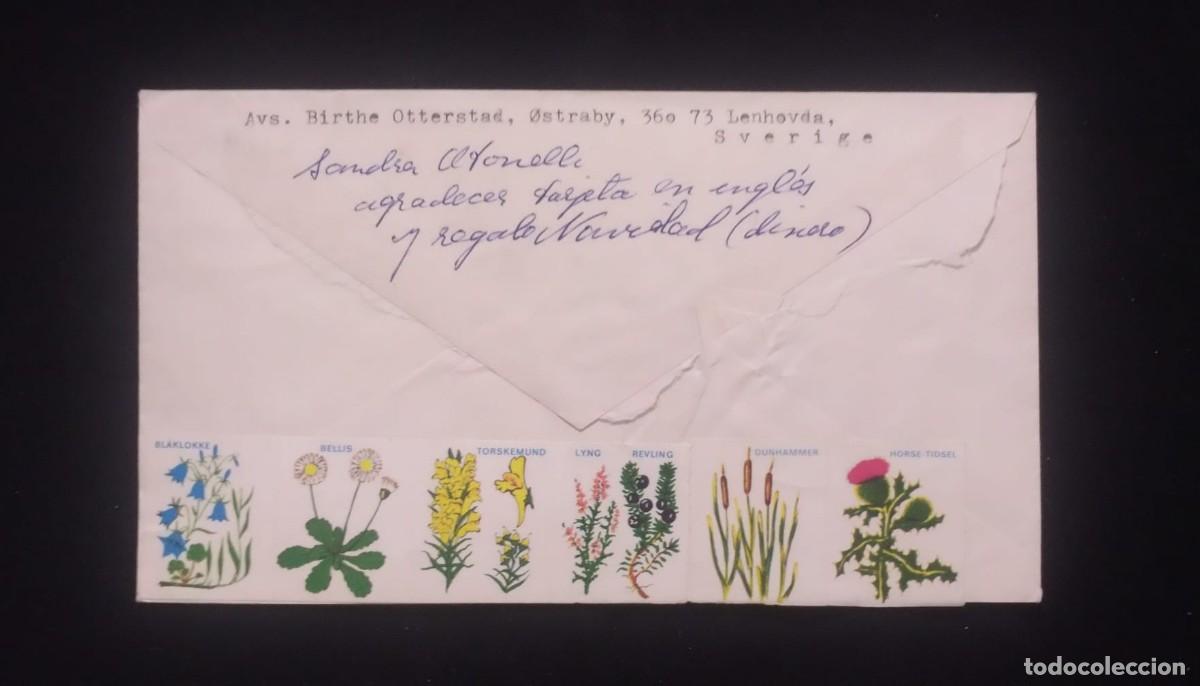 Avs. Birthe Otterstad, Østraby, 360 73 Lenhovda,
Sverige
Sandra
agradecer tarjeta en inglés
y regalo Navidad (dinero)
BLÅKLOKKE
BELLIS
TORSKEMUND
LYNG
REVLING
DUNHAMMER
HORSE-TIDSEL
todocoleccion